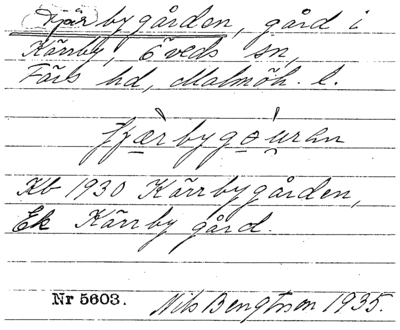 Kjärbygården, gård i
Kärrby, Öveds sn,
Färs hd, Malmöh. l.
Kb 1930 Kärrbygården,
Ek Kärrby gård.
Nr 5603. Nils Bengtsson 1935.